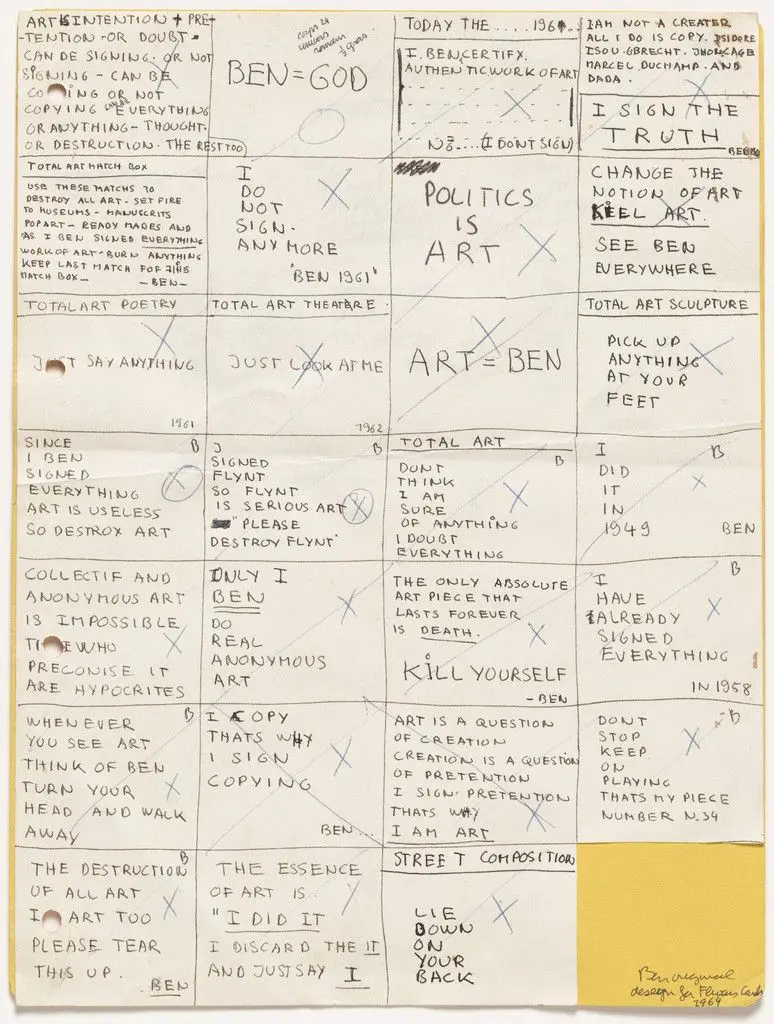 ART INTENTION + PRE-
-TENTION - OR DOUBT -
CAN DE SIGNING - OR NOT
SIGNING - CAN BE
OR NOT
COPYING EVERYTHING
OR ANYTHING - THOUGHT -
OR DESTRUCTION. THE REST TOO)
BEN = GOD
TODAY THE .... 196
I. BEN, CERTIFY.
AUTHENTIC WORK OF ART
Nō.... (I DONT SIGN)
I AM NOT A CREATER
ALL I DO IS COPY. ISIDORE
ISOU. GBRECHT. JHON CAGE
MARCEL DUCHAMP. AND
DADA.
I SIGN THE
TRUTH
BEN
TOTAL ART MATCH BOX
USE THESE MATCHS TO
DESTROY ALL ART - SET FIRE
TO MUSEUMS - MANUSCRITS
POP ART - READY MADES AND
AS I BEN SIGNED EVERYTHING
WORK OF ART - BURN ANYTHING
KEEP LAST MATCH FOR THIS
MATCH BOX - - BEN -
I
DO
NOT
SIGN.
ANY MORE
"BEN 1961"
POLITICS
IS
ART
CHANGE THE
NOTION OF ART
KEEL ART.
SEE BEN
EVERYWHERE
TOTAL ART POETRY
JUST SAY ANYTHING
1961
TOTAL ART THEATRE
JUST LOOK AT ME
1962
ART = BEN
TOTAL ART SCULPTURE
PICK UP
ANYTHING
AT YOUR
FEET
SINCE B
I BEN
SIGNED
EVERYTHING
ART IS USELESS
SO DESTROX ART
I B
SIGNED
FLYNT
SO FLYNT
IS SERIOUS ART
"PLEASE
DESTROY FLYNT"
TOTAL ART
B
DONT
THINK
I AM
SURE
OF ANYTHING
I DOUBT
EVERYTHING
I B
DID
IT
IN
1949 BEN
COLLECTIF AND
ANONYMOUS ART
IS IMPOSSIBLE
WHO
PRECONISE IT
ARE HYPOCRITES
ONLY I
BEN
DO
REAL
ANONYMOUS
ART
THE ONLY ABSOLUTE
ART PIECE THAT
LASTS FOREVER
IS DEATH.
KILL YOURSELF
- BEN
I B
HAVE
ALREADY
SIGNED
EVERYTHING
IN 1958
WHENEVER B
YOU SEE ART
THINK OF BEN
TURN YOUR
HEAD AND WALK
AWAY
I COPY
THATS WHY
I SIGN
COPYING
BEN...
ART IS A QUESTION
OF CREATION
CREATION IS A QUESTION
OF PRETENTION
I SIGN PRETENTION
THATS WHY
I AM ART
DONT B
STOP
KEEP
ON
PLAYING
THATS MY PIECE
NUMBER N.34
THE DESTRUCTION B
OF ALL ART
ART TOO
PLEASE TEAR
THIS UP.
BEN
THE ESSENCE
OF ART IS
"I DID IT
I DISCARD THE IT
AND JUST SAY I
STREET COMPOSITION
LIE
DOWN
ON
YOUR
BACK
Ben original
design for Fluxus Cards
1964